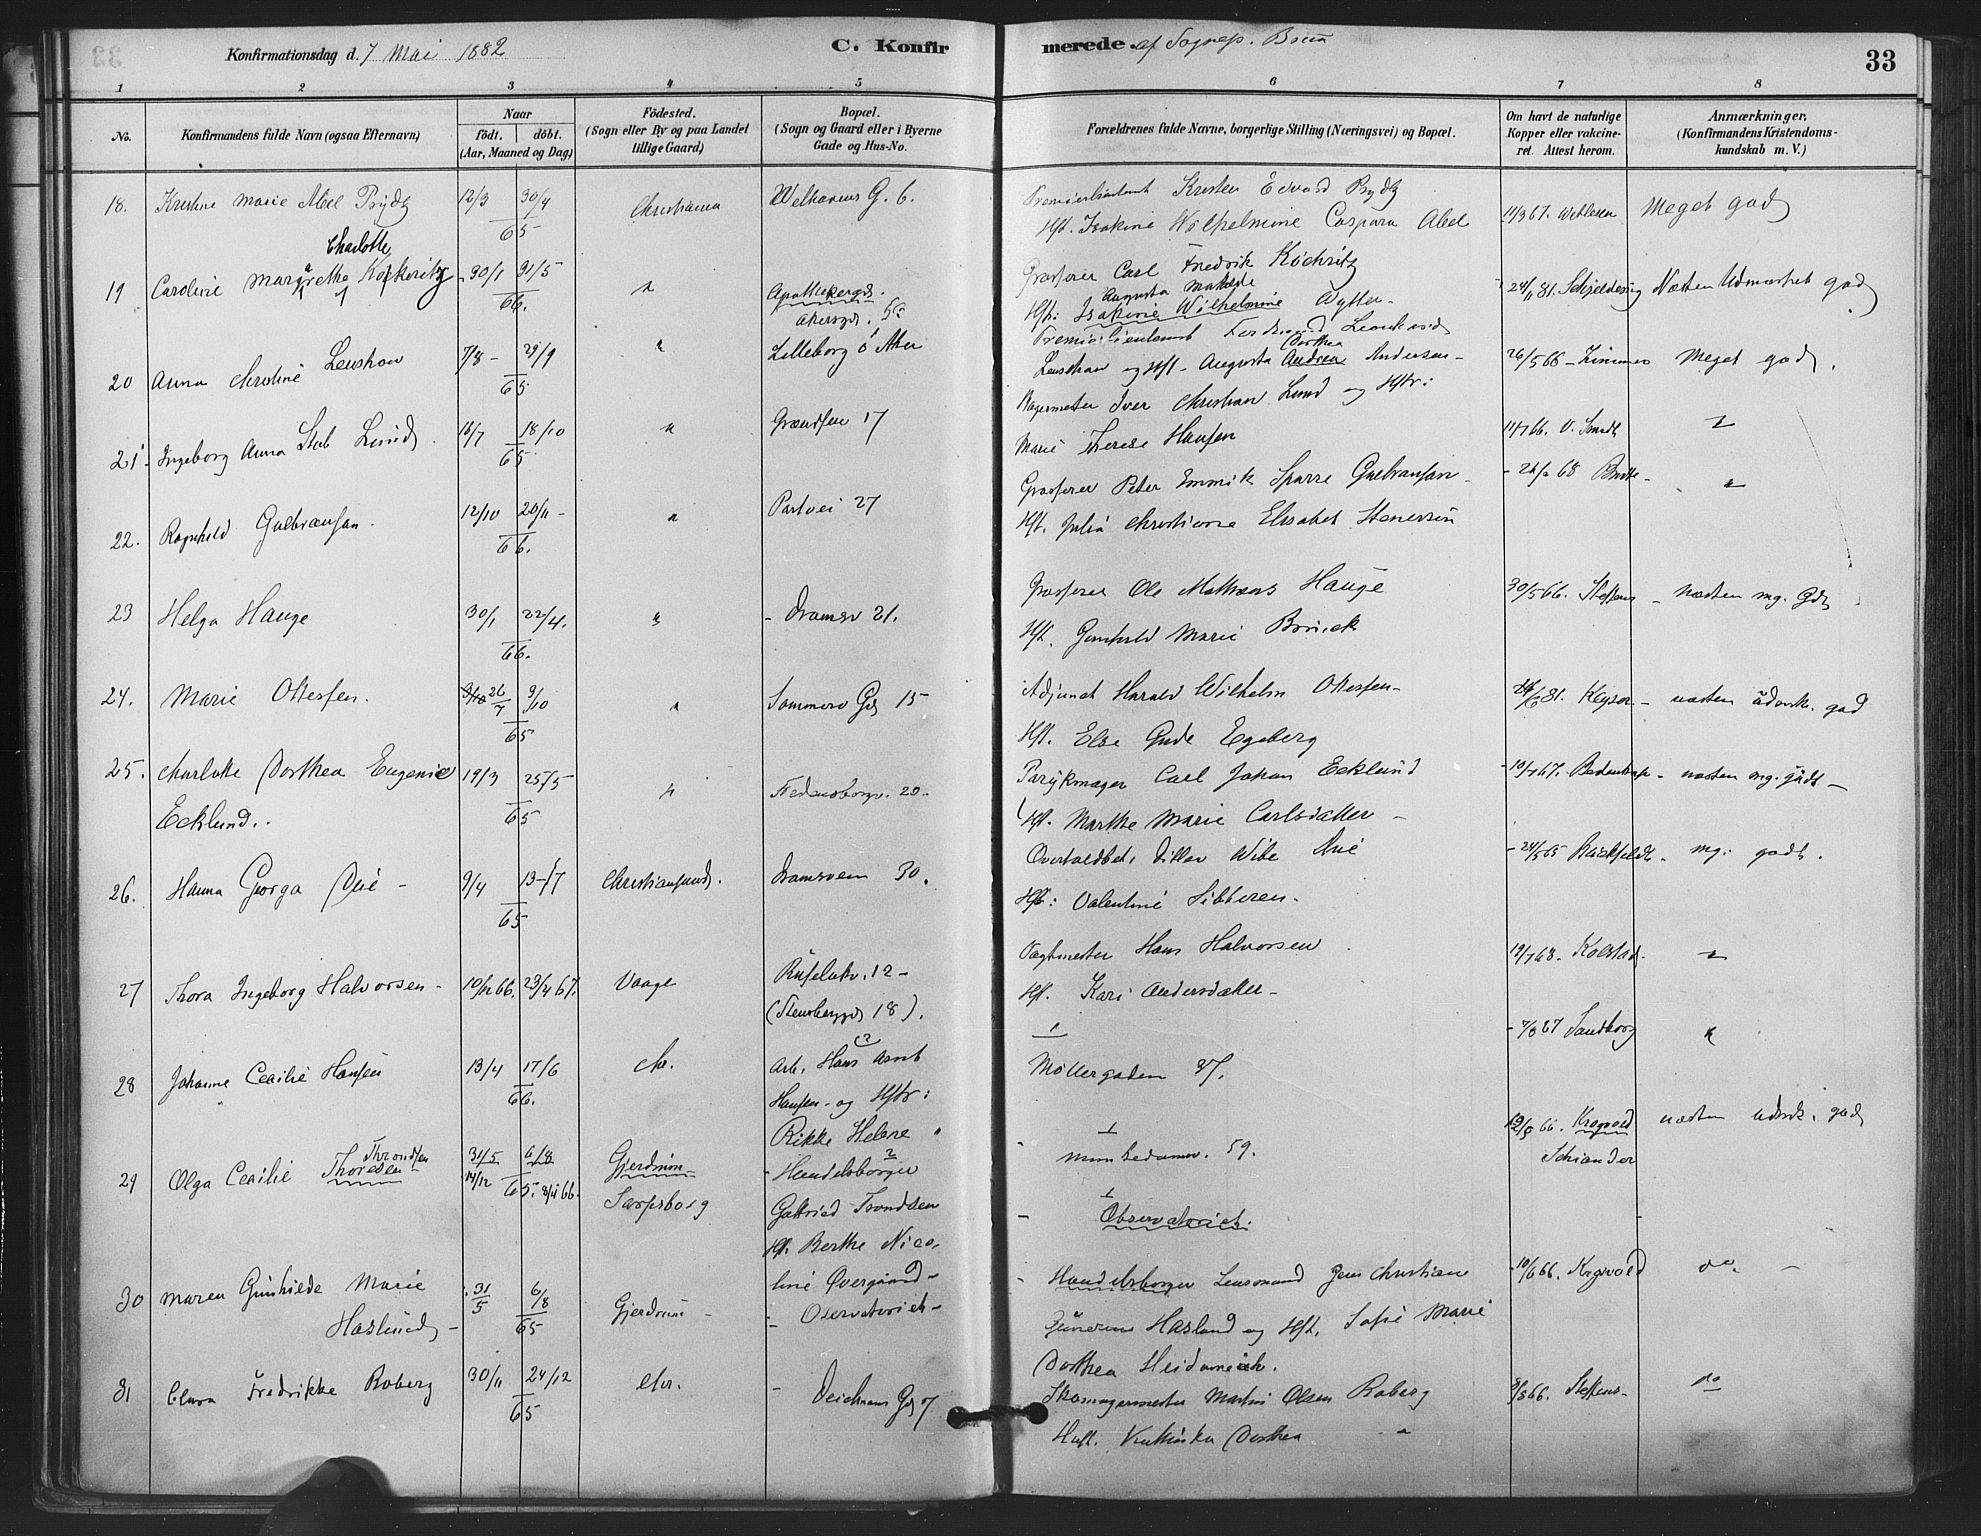 Konfirmationsdag d. 7 Mai 1882
C. Konfirmerede af Sognep. Bruun
33
1 2 3 4 5 6 7 8
No.
Konfirmandens fulde Navn (ogsaa Efternavn)
Naar
födt. döbt.
(Aar, Maaned og Dag)
Födested.
(Sogn eller By og paa Landet
tillige Gaard)
Bopæl.
(Sogn og Gaard eller i Byerne
Gade og Hus-No.
Forældrenes fulde Navne, borgerlige Stilling (Næringsvei) og Bopæl.
Om havt de naturlige
Kopper eller vakcine-
ret. Attest herom.
Anmærkninger.
(Konfirmandens Kristendoms-
kundskab m. V.)
18. Kristine Marie Abel Prydz 12/3 30/4 65 Christiania Welhavens G. 6.
Premierlieutenant Kristen Edvard Prydz
Hst. Isakine Wilhelmine Caspara Abel 11/3 67. Meget godt
19 Caroline Margrethe Charlotte 30/1 31/5 66. "
Akersgd. 55
Grosserer Carl Fredrik Köchritz
Hst: Isakine Wilhelmine Augusta 24/11 81. Næsten Udmærket godt
20 Anna Christine Lenshow 7/8 - 29/9 65 " Lilleborg i Aker
Premierlieutenant
Lenschow og Hst. Augusta Andrea Dorthea Andersen - 26/5 66 - Zimmer Meget godt.
21. Ingeborg Anna Stub Lund. 16/7 18/10 65 " Grændsen 17
Bagermester Iver Christian Lund og Hstr:
Marie Therese Hansen 11/7 66. "
22. Ragnhild Gulbransen. 12/10 20/11 - 66. " Parkvei 27
Grosserer Peter Emmik Sparre Gulbransen -
Hst. Julia Christiane Elisabet Stenersen "
23 Helga Hauge 30/1 22/4. 66. " - Dramsv 21.
Grosserer Ole Mathæus Hauge
Hst. Gunhild Marie 30/5 66. Steffens - næsten mg. Gdt
24. Marie Ottesen. 26/7 9/10 65 " Sommero Gd 15
Adjunct Harald Wilhelm Ottesen -
Hst. Else Gude Egeberg Keyser - næsten udmk. god
25. Charlotte Dorthea Eugenie
Ecklund. 19/3 25/5 65 " Fredensborgv. 20.
Parykmager Carl Johan Ecklund
Hst. Marthe Marie Carlsdatter - næsten mg. godt -
26. Hanna Georga Due - 9/4 13/7 65 Christiansund. Dramsvein 30.
Overtoldbet. Ditlev Wibe Due
Hst: Valentine Sibbersen. - 24/5 65 mg. godt.
27 Thora Ingeborg Halvorsen - 10/12 66. 23/4 67. Vaage Ruseløkv. 12 -
(Stensberggd 18).
Vagtmester Hans Halvorsen
Hst. Kari Andersdatter - 19/7 68. Kolstad. "
28 Johanne Cecilie Hansen 13/4 17/6 66. Chr.
Arb. Hans Arnt
Hansen - og Hstr:
Rikke Helene "
Möllergaden 37. - 7/8 67 Sandborg "
29 Olga Cecilie Thoresen Throndsen 31/5 6/8 14/12 65. 8/4 66. Gjerdrum
Sarpsborg
- Handelsborger
Gottfried Trondsen
Hst. Berthe Nico-
line Overgaard -
Munkedamsv. 59.
Observatoriet.
Kragvold
Schiander næsten udmk. godt
30 Maren Gunhilde Marie
Haslund - 31/5 6/8 65 Gjerdrum - - Observatoriet -
Handelsborger Lensmand Jens Christian
Haslund og Hst. Sofie Marie
Dorthea Heidenreich. - 10/6 66. Kragvold do. -
31 Clara Fredrikke Boberg 30/11 24/12 65 Chr. - Deichmans Gd 7
Skomagermester Martin Olsen Boberg
Hust. Dorthea " 8/8 66. Steffens - do